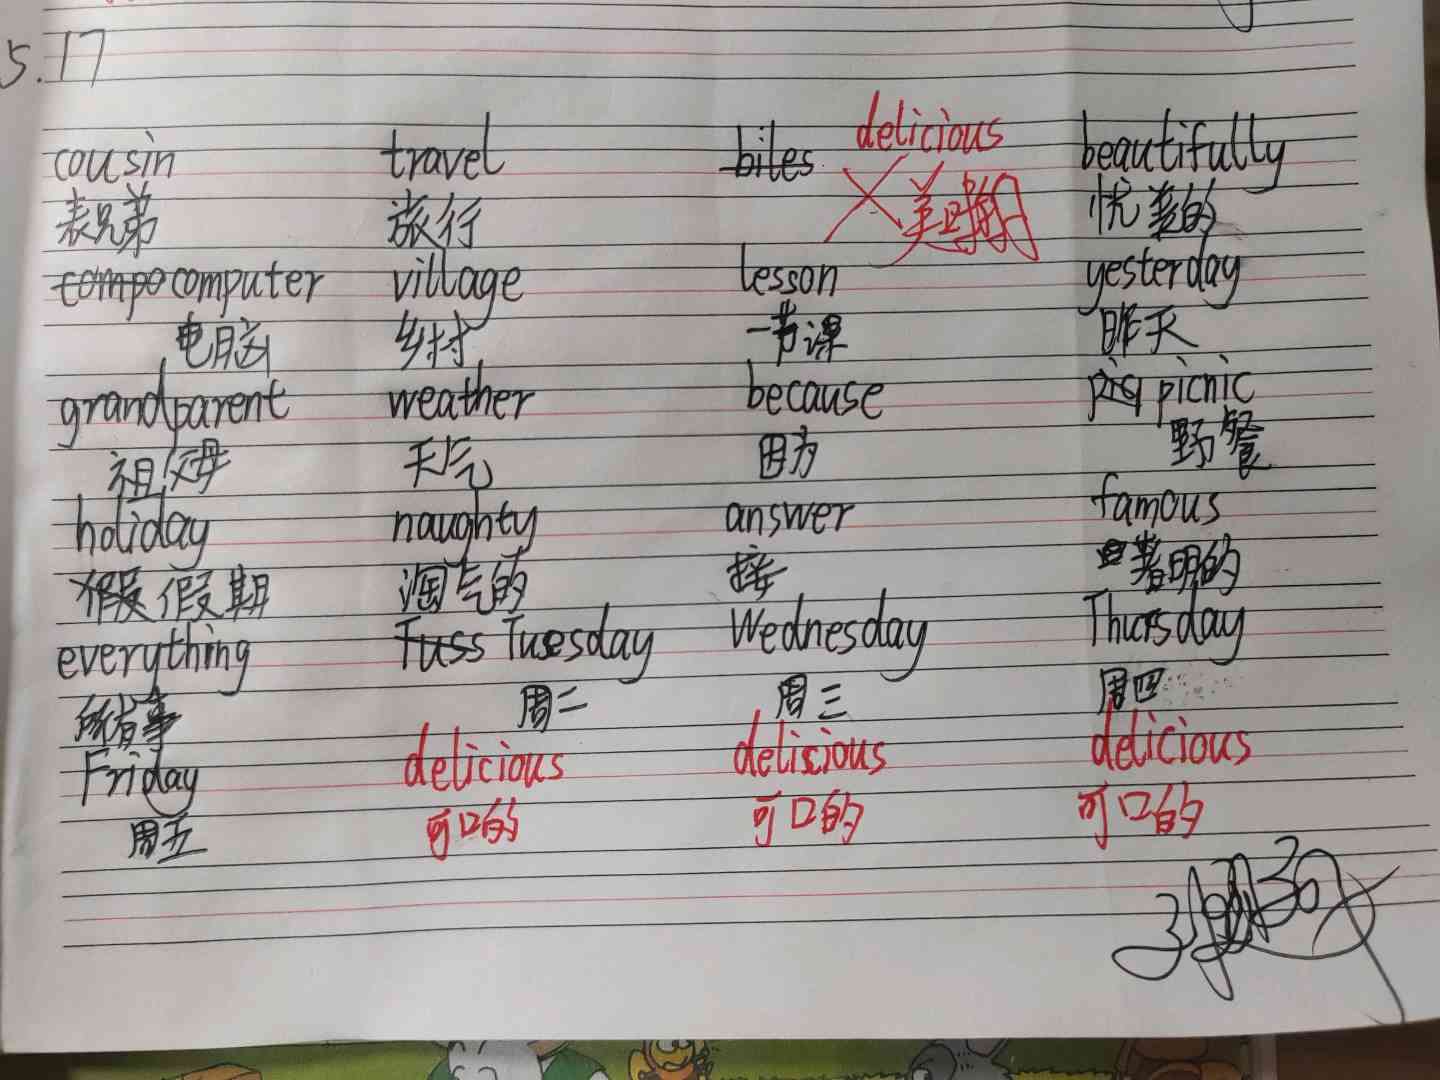 5.17
cousin travel biles delicious beautifully
表兄弟 旅行 悦美的
compo computer village lesson yesterday
电脑 乡村 一节课 昨天
grandparent weather because picnic
祖父母 天气 因为 野餐
holiday naughty answer famous
假 假期 淘气的 接 著明的
everything Tuss Tuesday Wednesday Thursday
所有事 周二 周三 周四
Friday delicious delicious delicious
周五 可口的 可口的 可口的